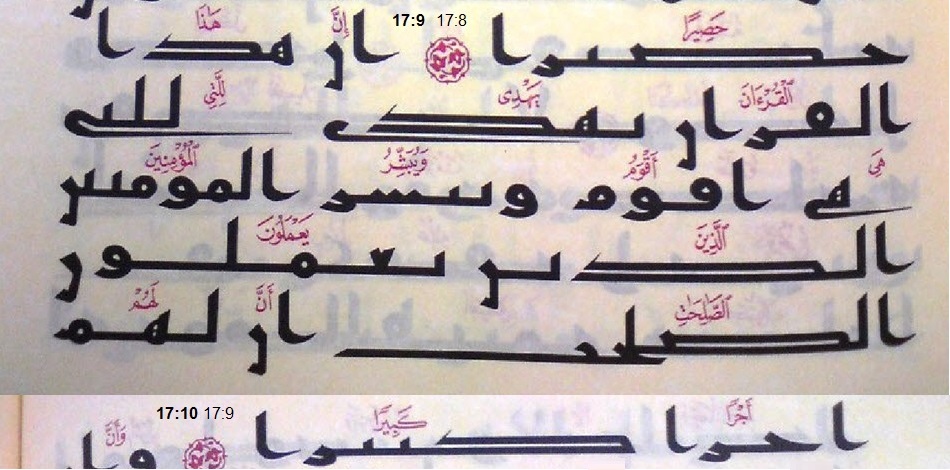 17:9 17:8
حَصِيرًا إِنَّ هَٰذَا
حصيرا ان هذا
ٱلْقُرْءَانَ يَهْدِى لِلَّتِي
القران يهدي للتي
هِيَ أَقْوَمُ وَيُبَشِّرُ ٱلْمُؤْمِنِينَ
هي اقوم ويبشر المومنين
ٱلَّذِينَ يَعْمَلُونَ
الذين يعملون
ٱلصَّٰلِحَٰتِ أَنَّ لَهُمْ
الصلحت ان لهم
17:10 17:9
أَجْرًا كَبِيرًا وَأَنَّ
اجرا كبيرا وان